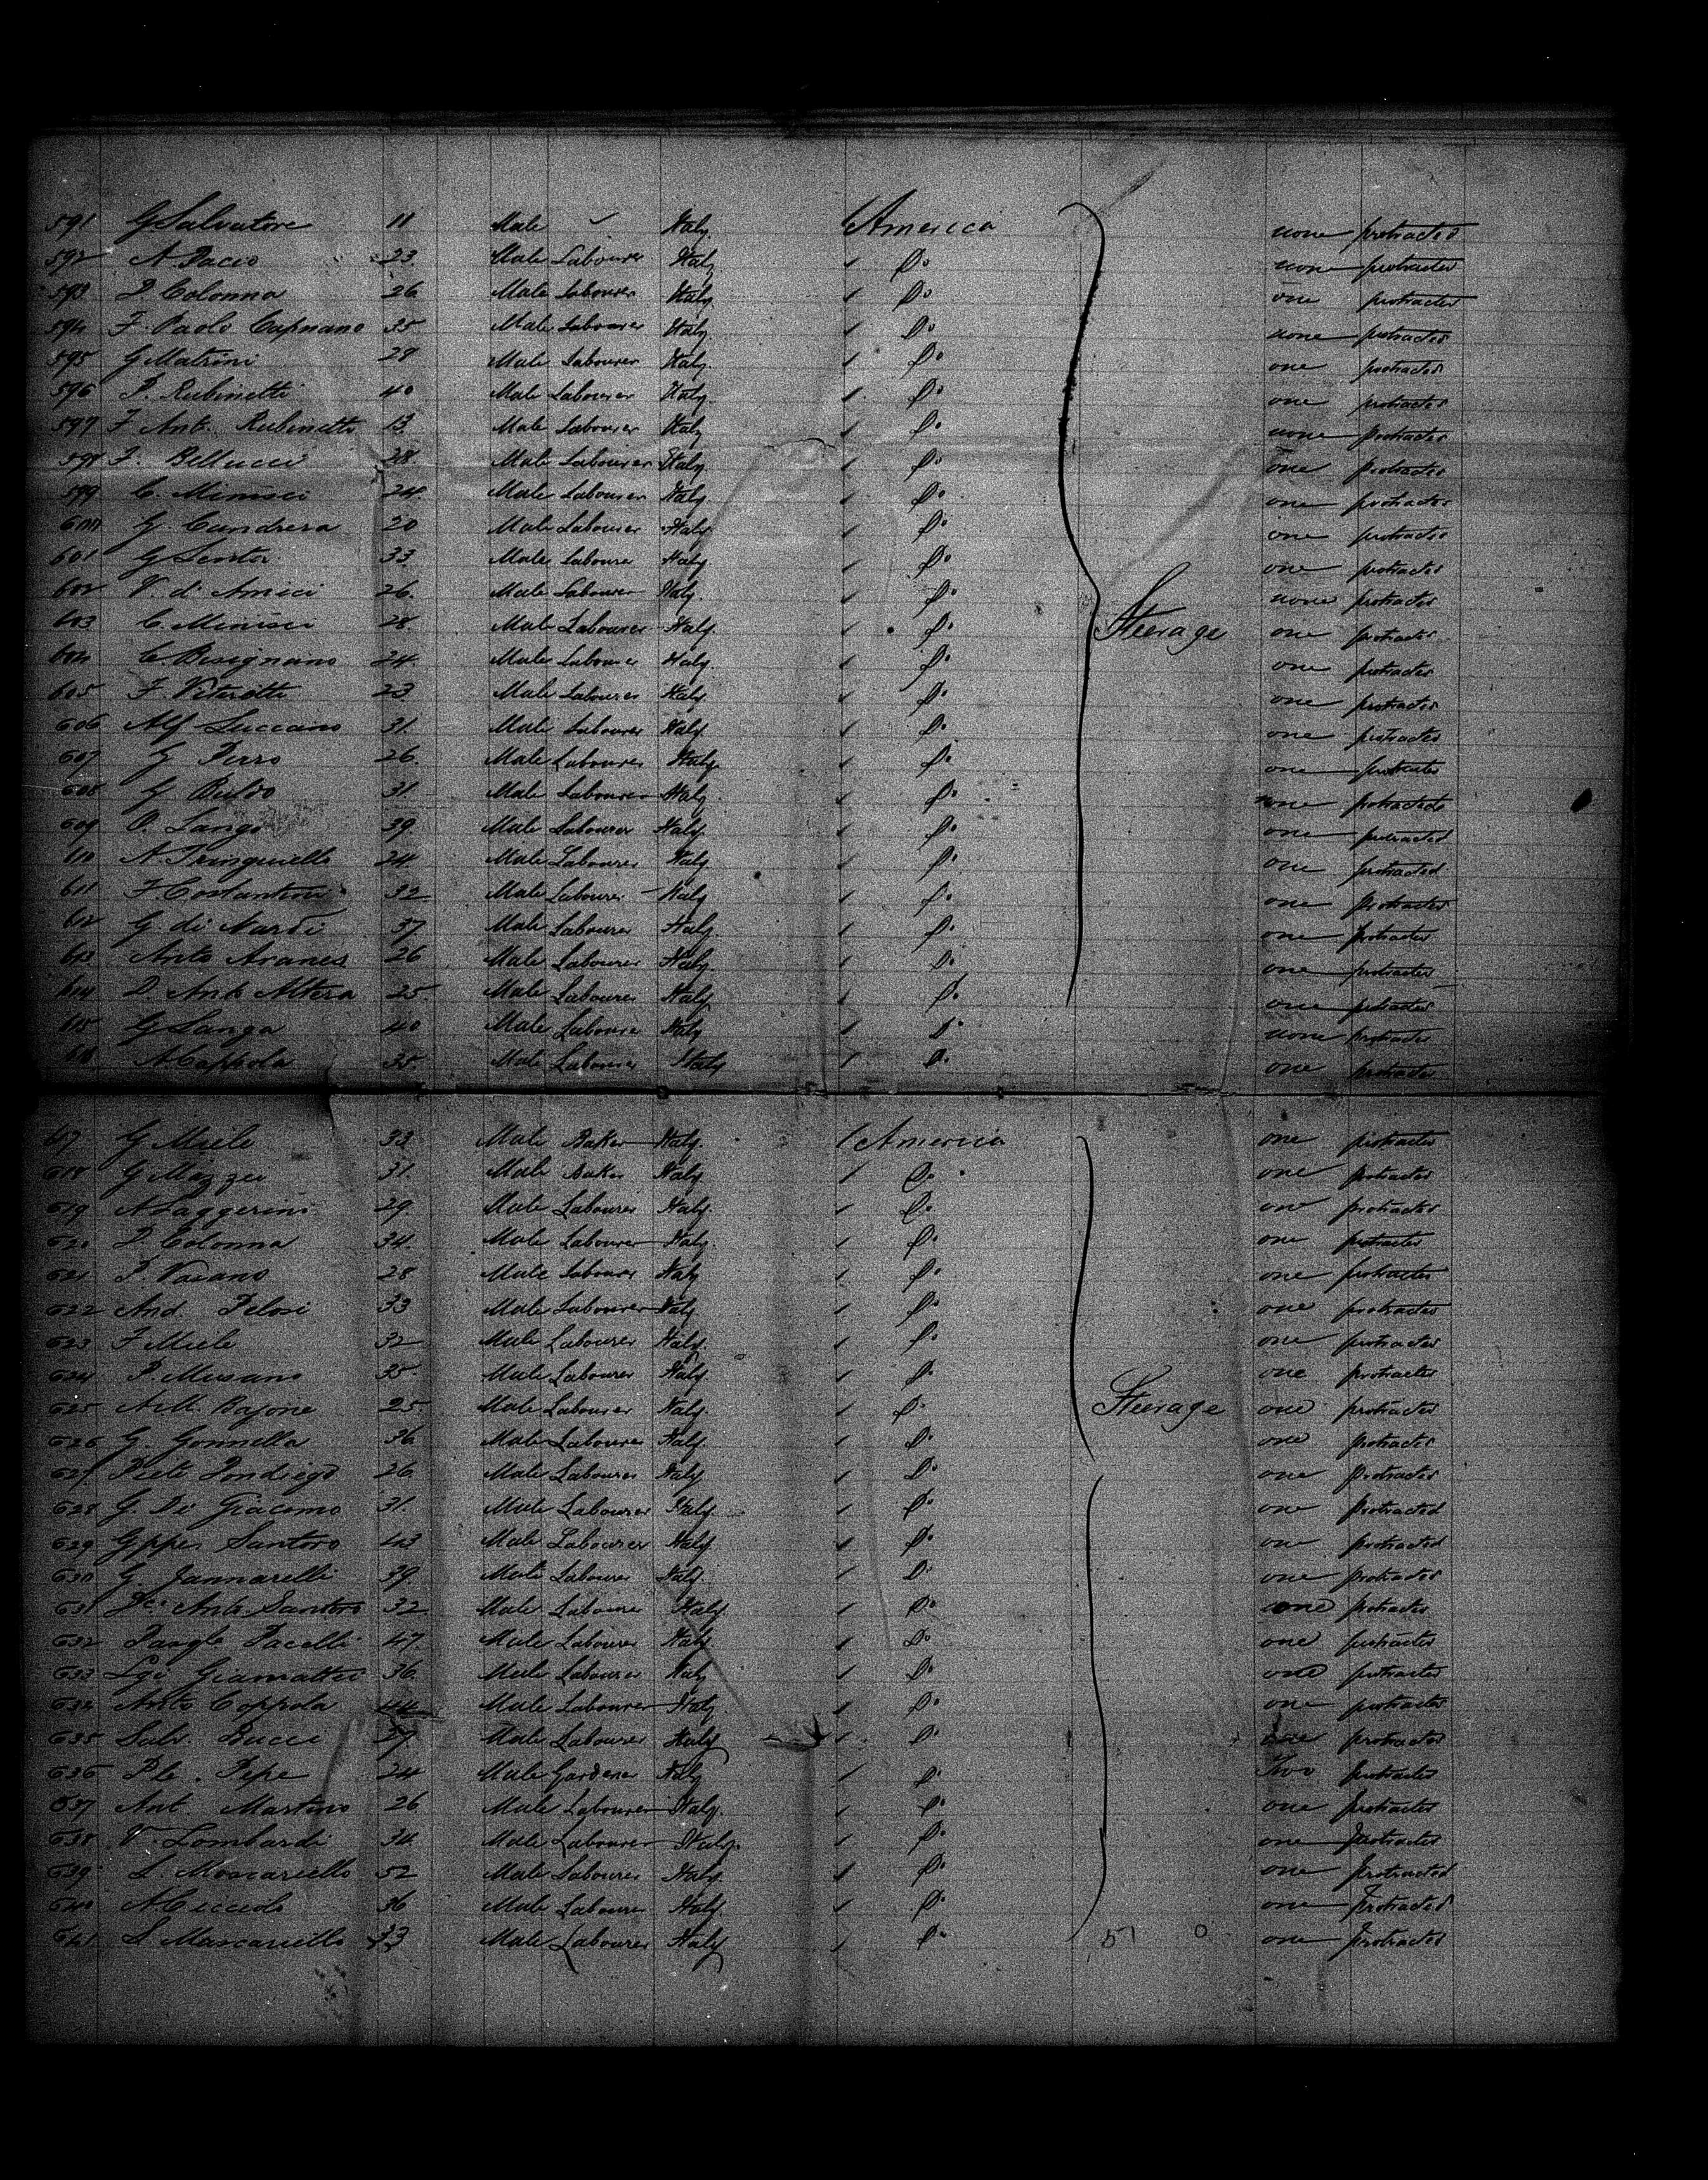 591 G Salvatore 11 Male Italy America none protracted
592 A. Pacco 23 Male Labourer Italy Do none protracted
593 D. Colonna 26 Male Labourer Italy Do one protracted
594 F. Paolo Capuano 35 Male Labourer Italy Do none protracted
595 G Matrini 29 Male Labourer Italy Do one protracted
596 P. Rubinetti 40 Male Labourer Italy Do one protracted
597 F Ant. Rubinetti 13 Male Labourer Italy Do none protracted
598 F. Bellucci 28 Male Labourer Italy Do one protracted
599 C. Minisci 24 Male Labourer Italy Do one protracted
600 G. Cundrera 20 Male Labourer Italy Do one protracted
601 G 33 Male Labourer Italy Do one protracted
602 V. d' Amici 26 Male Labourer Italy Do none protracted
603 C. Minisci 28 Male Labourer Italy Do Steerage one protracted
604 C. Bisignano 24 Male Labourer Italy Do one protracted
605 F Viterotti 23 Male Labourer Italy Do one protracted
606 Alf Lucciano 31 Male Labourer Italy Do one protracted
607 G Perro 26 Male Labourer Italy Do one protracted
608 G 31 Male Labourer Italy Do one protracted
609 O. Lango 39 Male Labourer Italy Do one protracted
610 A. 24 Male Labourer Italy Do one protracted
611 F Costantini 32 Male Labourer Italy Do one protracted
612 G. di Nardi 37 Male Labourer Italy Do one protracted
613 Anto Aranes 26 Male Labourer Italy Do one protracted
614 D. Anto Altera 25 Male Labourer Italy Do one protracted
615 G Langa 40 Male Labourer Italy Do none protracted
616 A Cappola 35 Male Labourer Italy Do one protracted
617 G Miele 33 Male Baker Italy America one protracted
618 G Mazzei 31 Male Baker Italy Do one protracted
619 A Laggerini 29 Male Labourer Italy Do one protracted
620 D Colonna 34 Male Labourer Italy Do one protracted
621 P. Vaiano 28 Male Labourer Italy Do one protracted
622 And. Pelosi 33 Male Labourer Italy Do one protracted
623 F Miele 32 Male Labourer Italy Do one protracted
624 P. Musano 35 Male Labourer Italy Do one protracted
625 Bajone 25 Male Labourer Italy Do Steerage one protracted
626 G. Gonnella 36 Male Labourer Italy Do one protracted
627 Piete Pondiego 26 Male Labourer Italy Do one protracted
628 G. Di Giacomo 31 Male Labourer Italy Do one protracted
629 Gppe. Santoro 43 Male Labourer Italy Do one protracted
630 G. Jannarelli 39 Male Labourer Italy Do one protracted
631 Anto. Santoro 32 Male Labourer Italy Do one protracted
632 Pasqle Pacelli 47 Male Labourer Italy Do one protracted
633 Lgi Giamattei 36 Male Labourer Italy Do one protracted
634 Anto Coppola 44 Male Labourer Italy Do one protracted
635 Salv. Bucci 27 Male Labourer Italy Do one protracted
636 Ple. Pepe 24 Male Gardener Italy Do Two protracted
637 Ant. Martino 26 Male Labourer Italy Do one protracted
638 V. Lombardi 34 Male Labourer Italy Do one protracted
639 L. Moscariello 52 Male Labourer Italy Do one protracted
640 A Ciccioli 36 Male Labourer Italy Do one protracted
641 L Mascariello 33 Male Labourer Italy Do 51 0 one protracted